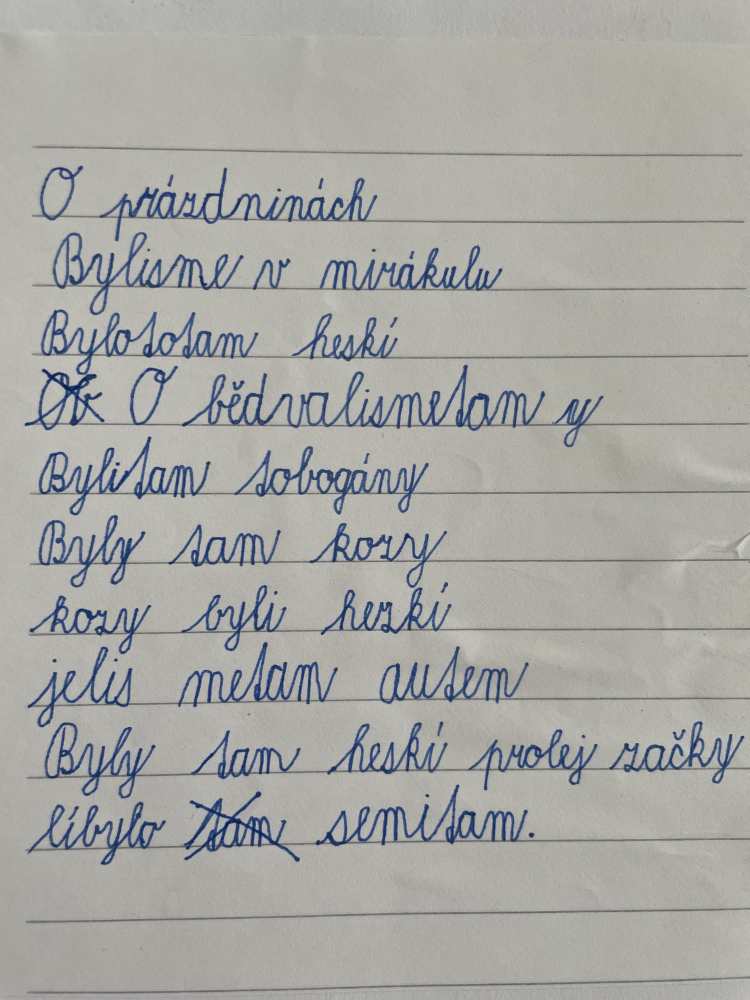 O prázdninách
Bylisme v mirákulu
Bylototam heskí
O bědvalismetam y
Bylitam tobogány
Byly tam kozy
kozy byli hezkí
jelis metam autem
Byly tam heskí prolej začky
líbylo semitam.